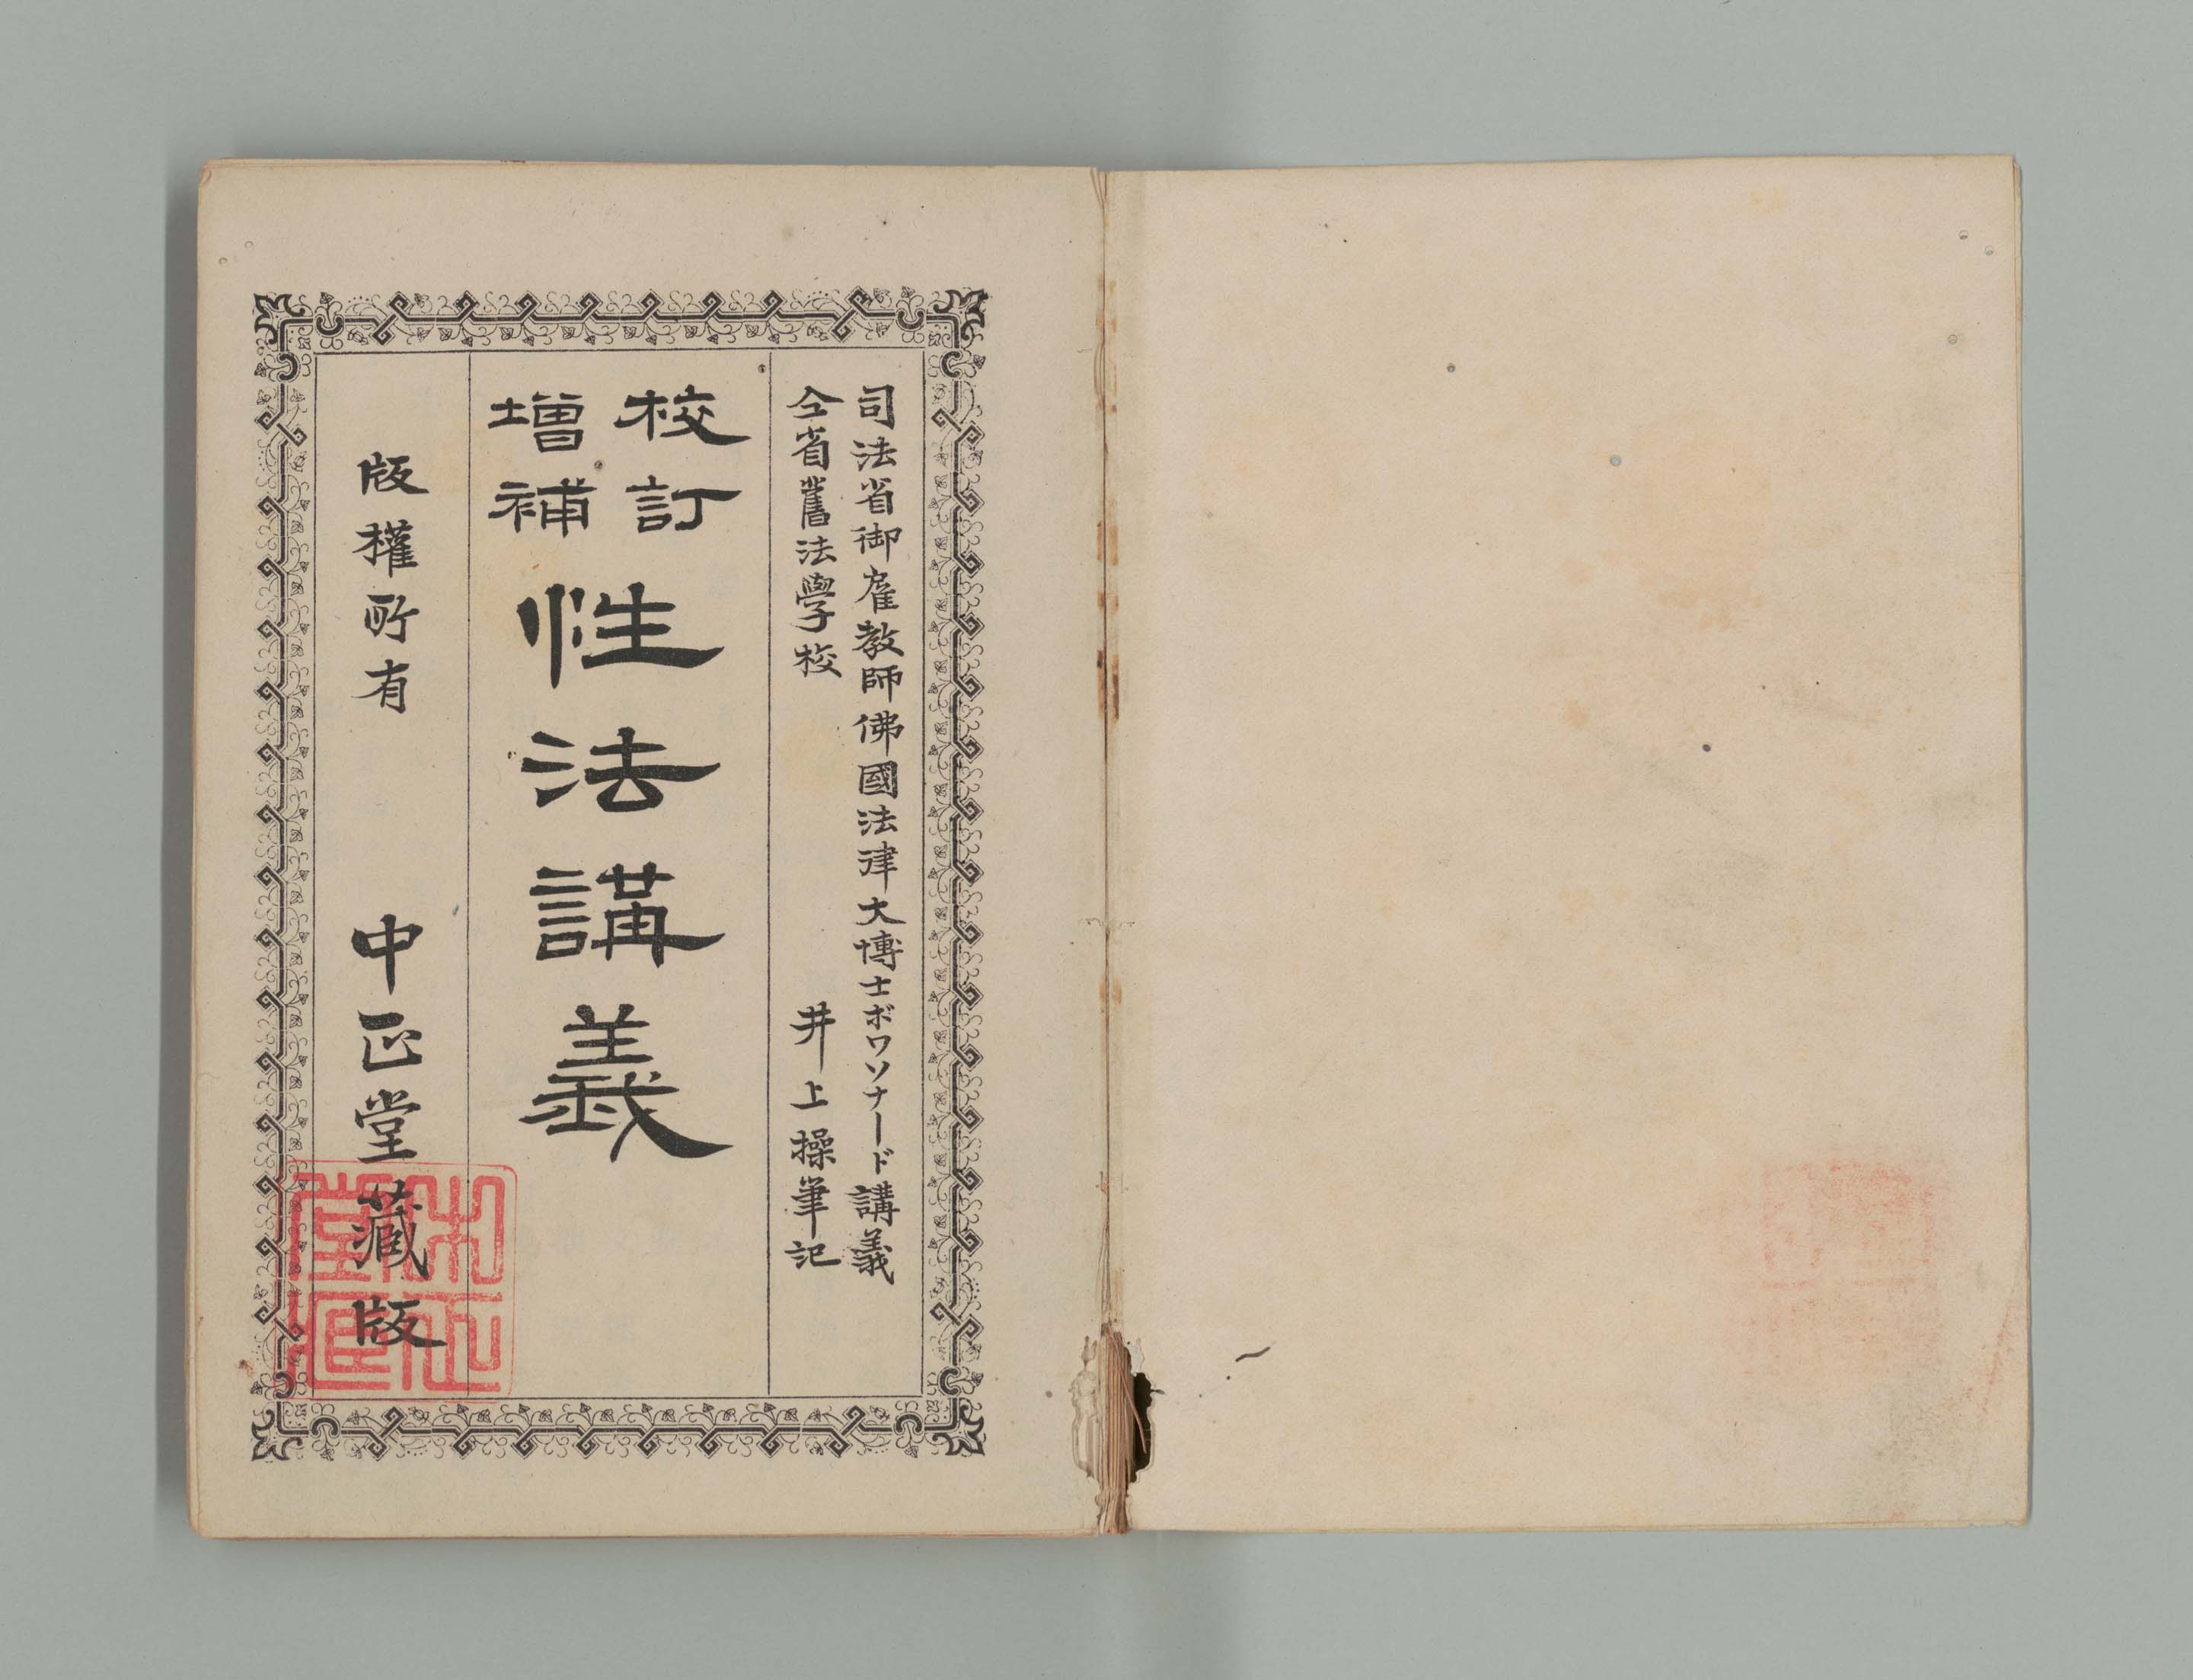 司法省御雇教師佛國法律大博士ボワソナード講義
仝省舊法學校 井上操筆記
校訂
增補
性法講義
版權所有 中正堂藏版